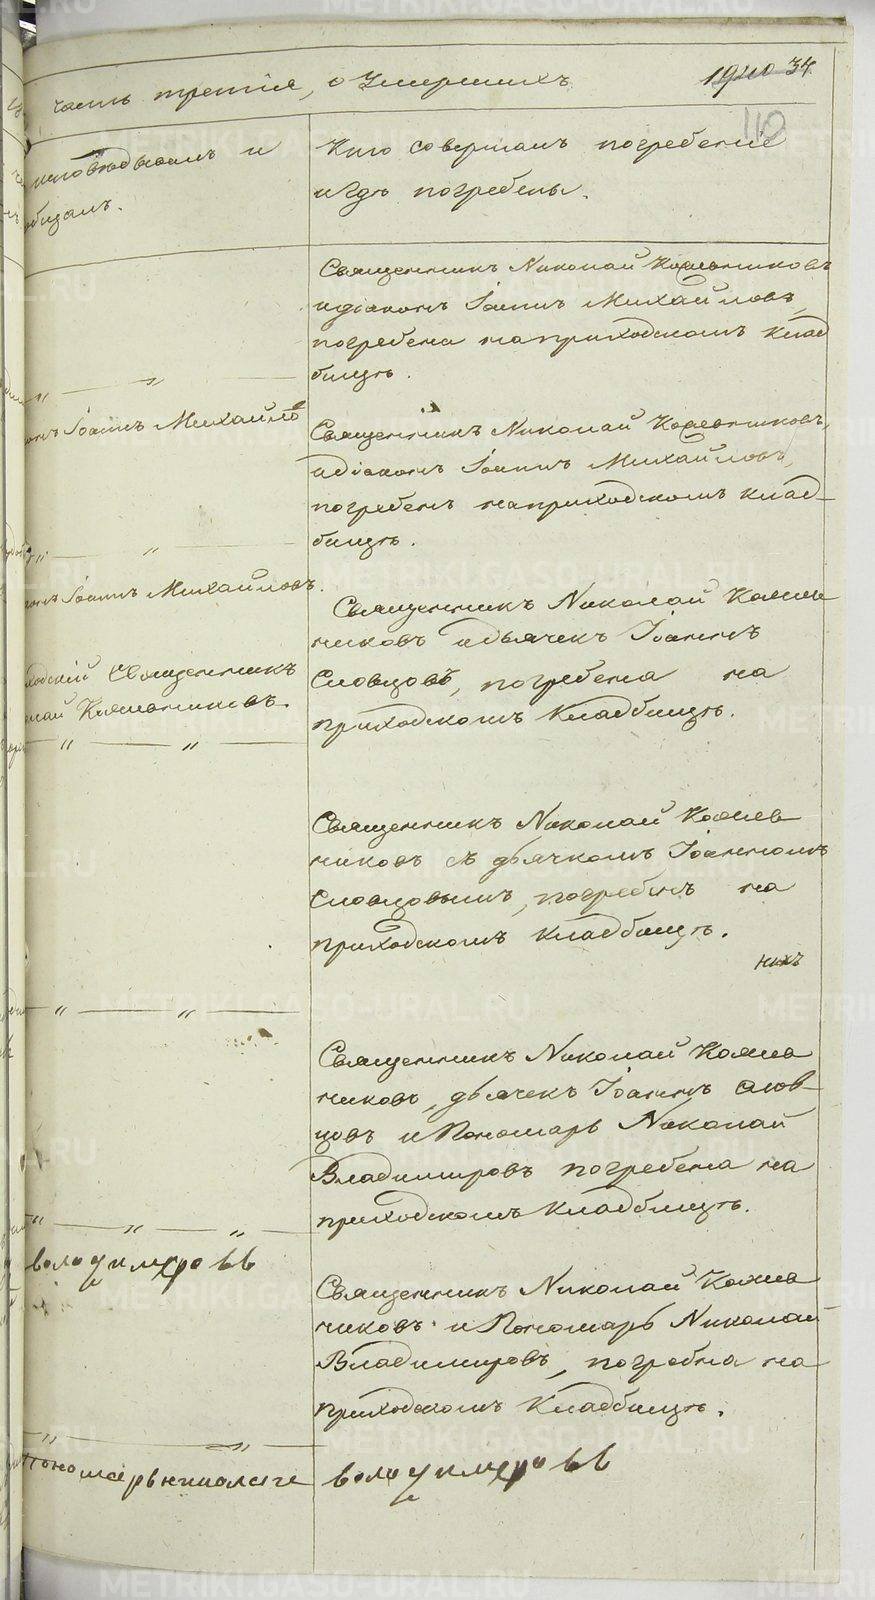 часть третія, о Умершихъ
110
исповѣдывалъ и
общалъ.
Кто совершалъ погребеніе
и гдѣ погребены.
Священникъ Николай Кожевниковъ
и діаконъ Іоаннъ Михайловъ,
погребена на приходскомъ клад
бищѣ.
Іоаннъ Михайло
Священникъ Николай Кожевниковъ,
и діаконъ Іоаннъ Михайловъ,
погребенъ на приходскомъ клад-
бищѣ.
Іоаннъ Михайловъ.
Священникъ Николай Кожев
никовъ и дьячекъ Іоаннъ
Словцовъ, погребена на
приходскомъ Кладбищѣ.
ходскій Священникъ
лай Кожевниковъ.
Священникъ Николай Кожев
никовъ съ дьячкомъ Іоанномъ
Словцовымъ, погребенъ на
приходскомъ Кладбищѣ.
нихъ
Священникъ Николай Кожев
никовъ, дьячекъ Іоаннъ Слов-
цовъ и Пономарь Николай
Владимировъ погребена на
приходскомъ Кладбищѣ.
Священникъ Николай Кожев
никовъ и Пономарь Николай
Владимировъ, погребна на
приходскомъ Кладбищѣ.
METRIKI.GASO-URAL.RU